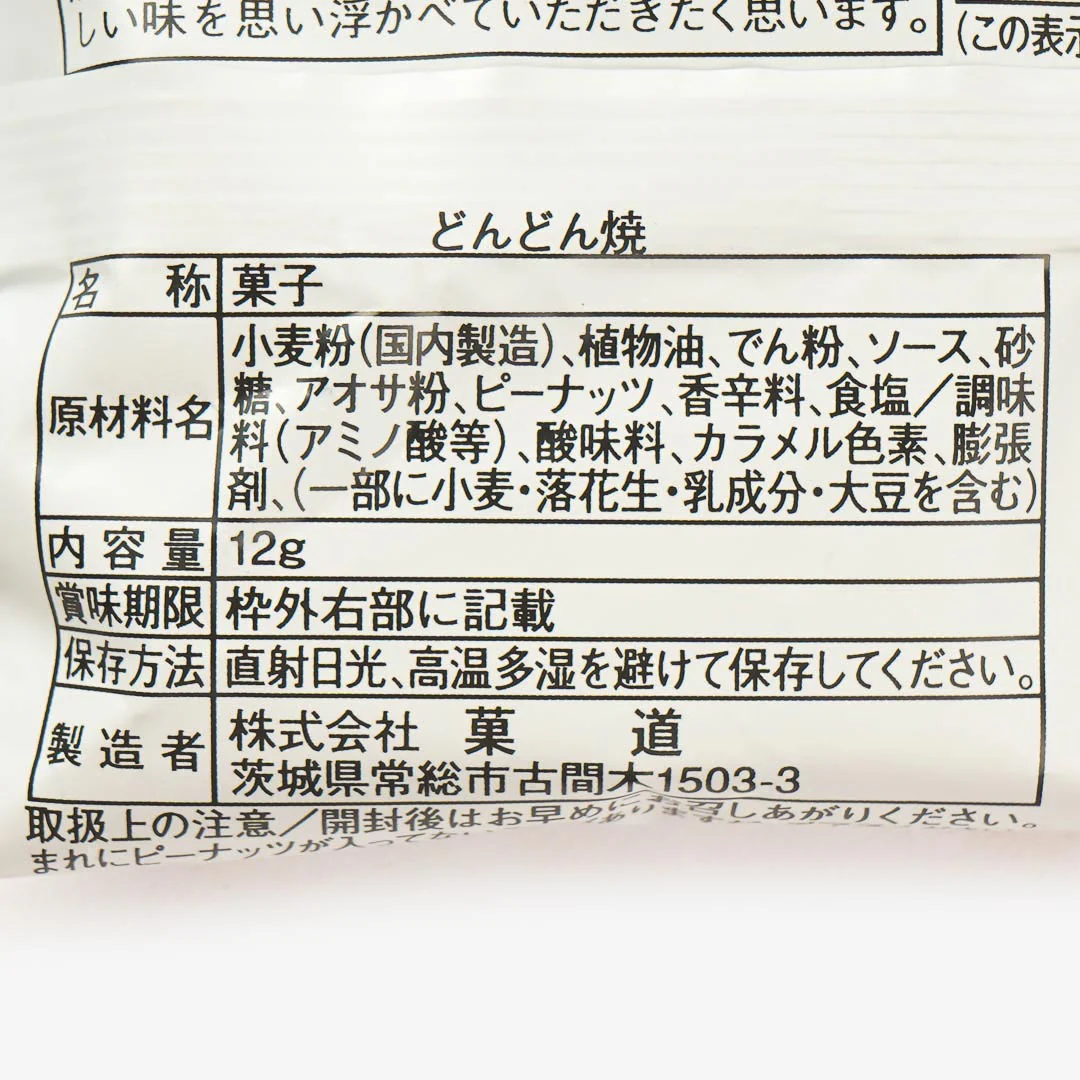 しい味を思い浮かべていただきたく思います。
(この表示
どんどん焼
名称 菓子
原材料名 小麦粉(国内製造)、植物油、でん粉、ソース、砂
糖、アオサ粉、ピーナッツ、香辛料、食塩／調味
料(アミノ酸等)、酸味料、カラメル色素、膨張
剤、(一部に小麦・落花生・乳成分・大豆を含む)
内容量 12g
賞味期限 枠外右部に記載
保存方法 直射日光、高温多湿を避けて保存してください。
製造者 株式会社 菓道
茨城県常総市古間木1503-3
取扱上の注意／開封後はお早めにお召しあがりください。
まれにピーナッツが入って